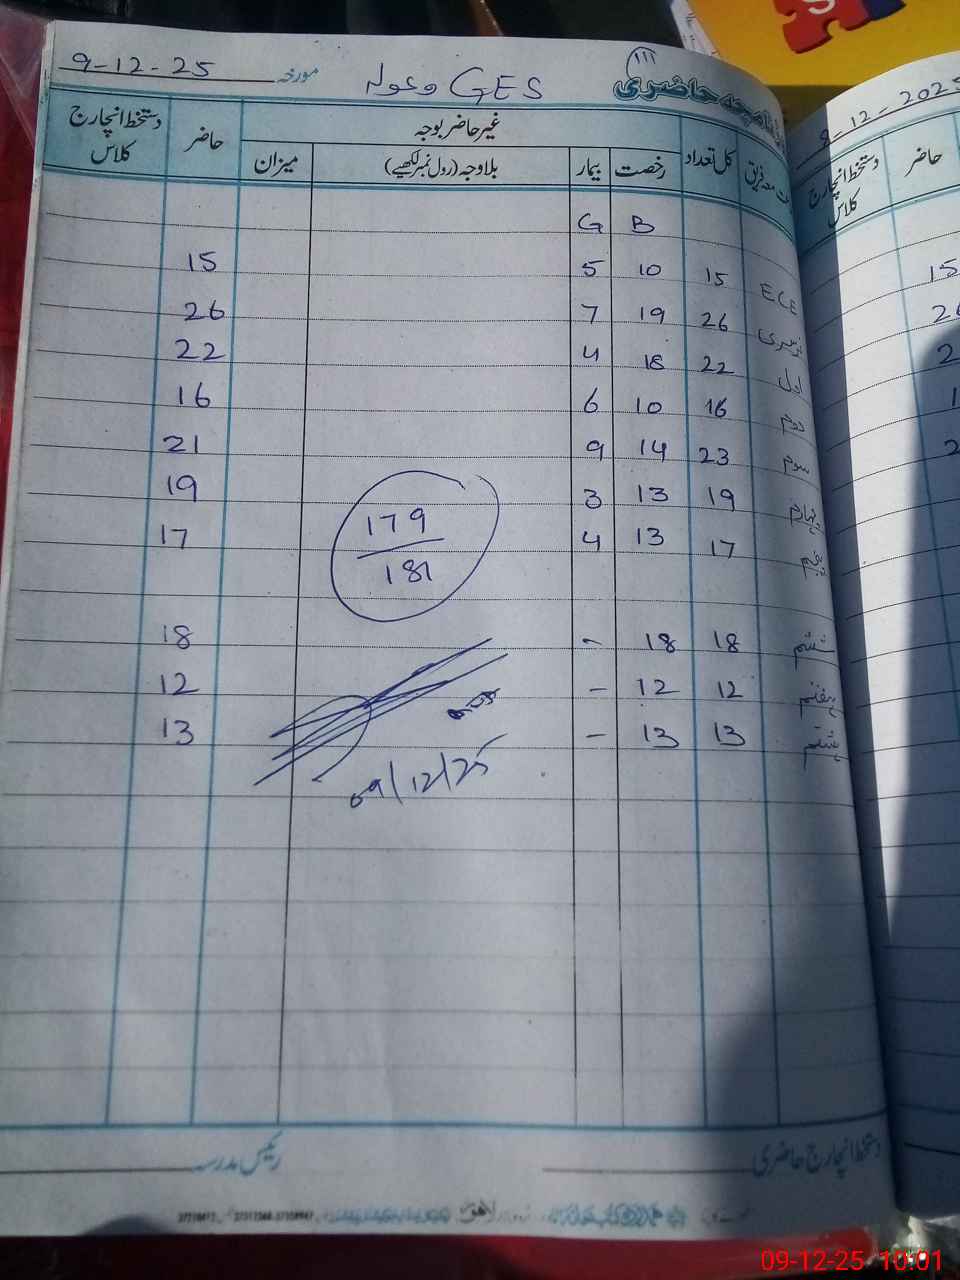 روزنامچہ حاضری
111
GES وعولہ
مورخہ 9-12-25
کل تعداد غیر حاضر بوجہ حاضر دستخط انچارج کلاس
رخصت بیمار بلاوجہ (رول نمبر لکھیے) میزان
B G
ECE 15 10 5 15
نرسری 26 19 7 26
اول 22 18 4 22
دوم 16 10 6 16
سوم 23 14 9 21
چہارم 19 13 3 19
پنجم 17 13 4 17
179
181
ششم 18 18 - 18
ہفتم 12 12 - 12
ہشتم 13 13 - 13
09/12/25
دستخط انچارج حاضری رئیس مدرسہ
لاہور
9-12-2025
حاضر دستخط انچارج کلاس
15
26
09-12-25 10:01